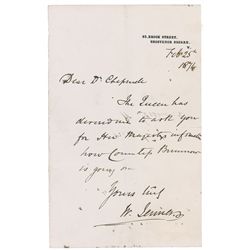 63, BROOK STREET,
GROSVENOR SQUARE,
W.
Feb 25th
1874
Dear Dr
The Queen has
me to ask you
for Her Majesty's
how Countess Brunnow
is going on
Yours truly
W. Jenner